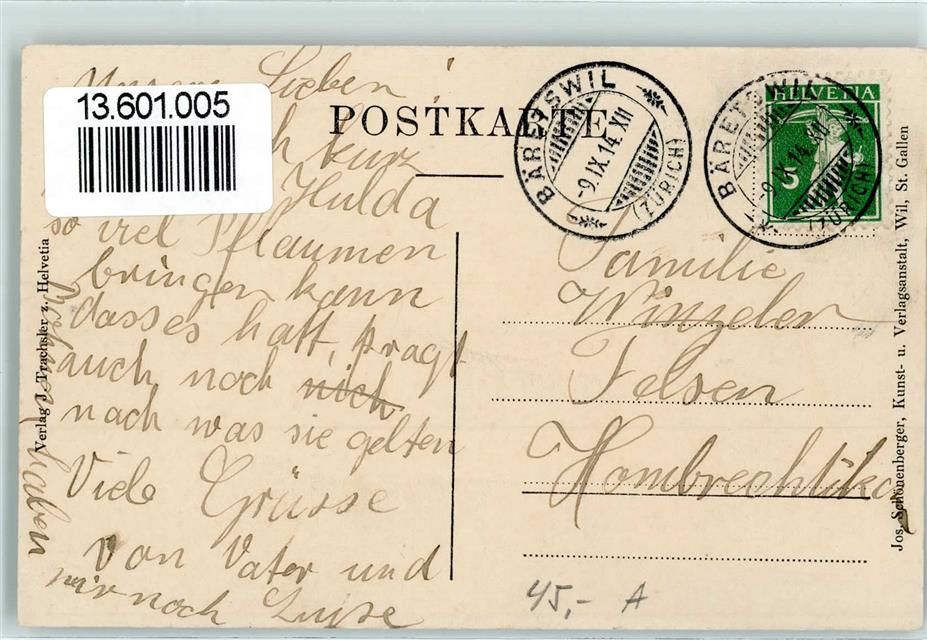 Unsere Lieben!
13.601.005
kurz
Hulda
so viel Pflaumen
bringen kann
dass es hatt, fragt
auch noch nich
nach was sie gelten
Viele Grüsse
von Vater und
wir noch Luise
haben
POSTKARTE
BÄRETSWIL
-9.IX.14.XII
(ZÜRICH)
BÄRETSWIL
-9.IX.14.XII
(ZÜRICH)
HELVETIA
5
Familie
Winzeler
Felsen
Hombrechtikon
45,- A
Verlag J. Trachsler z. Helvetia
Jos. Schönenberger, Kunst- u. Verlagsanstalt, Wil, St. Gallen